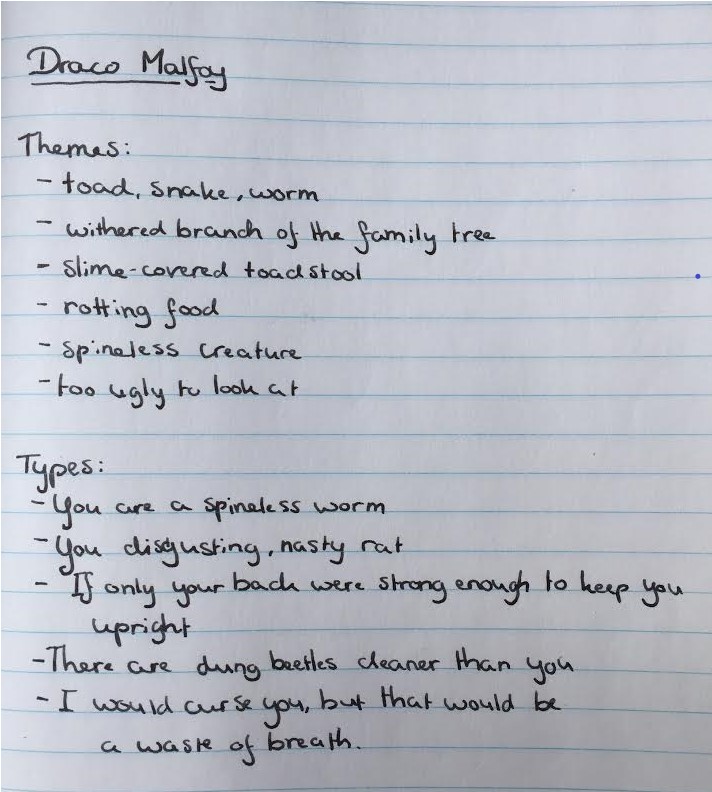 Draco Malfoy
Themes:
- toad, snake, worm
- withered branch of the family tree
- slime-covered toadstool
- rotting food
- spineless creature
- too ugly to look at
Types:
- You are a spineless worm
- You disgusting, nasty rat
- If only your back were strong enough to keep you
upright
- There are dung beetles cleaner than you
- I would curse you, but that would be
a waste of breath.